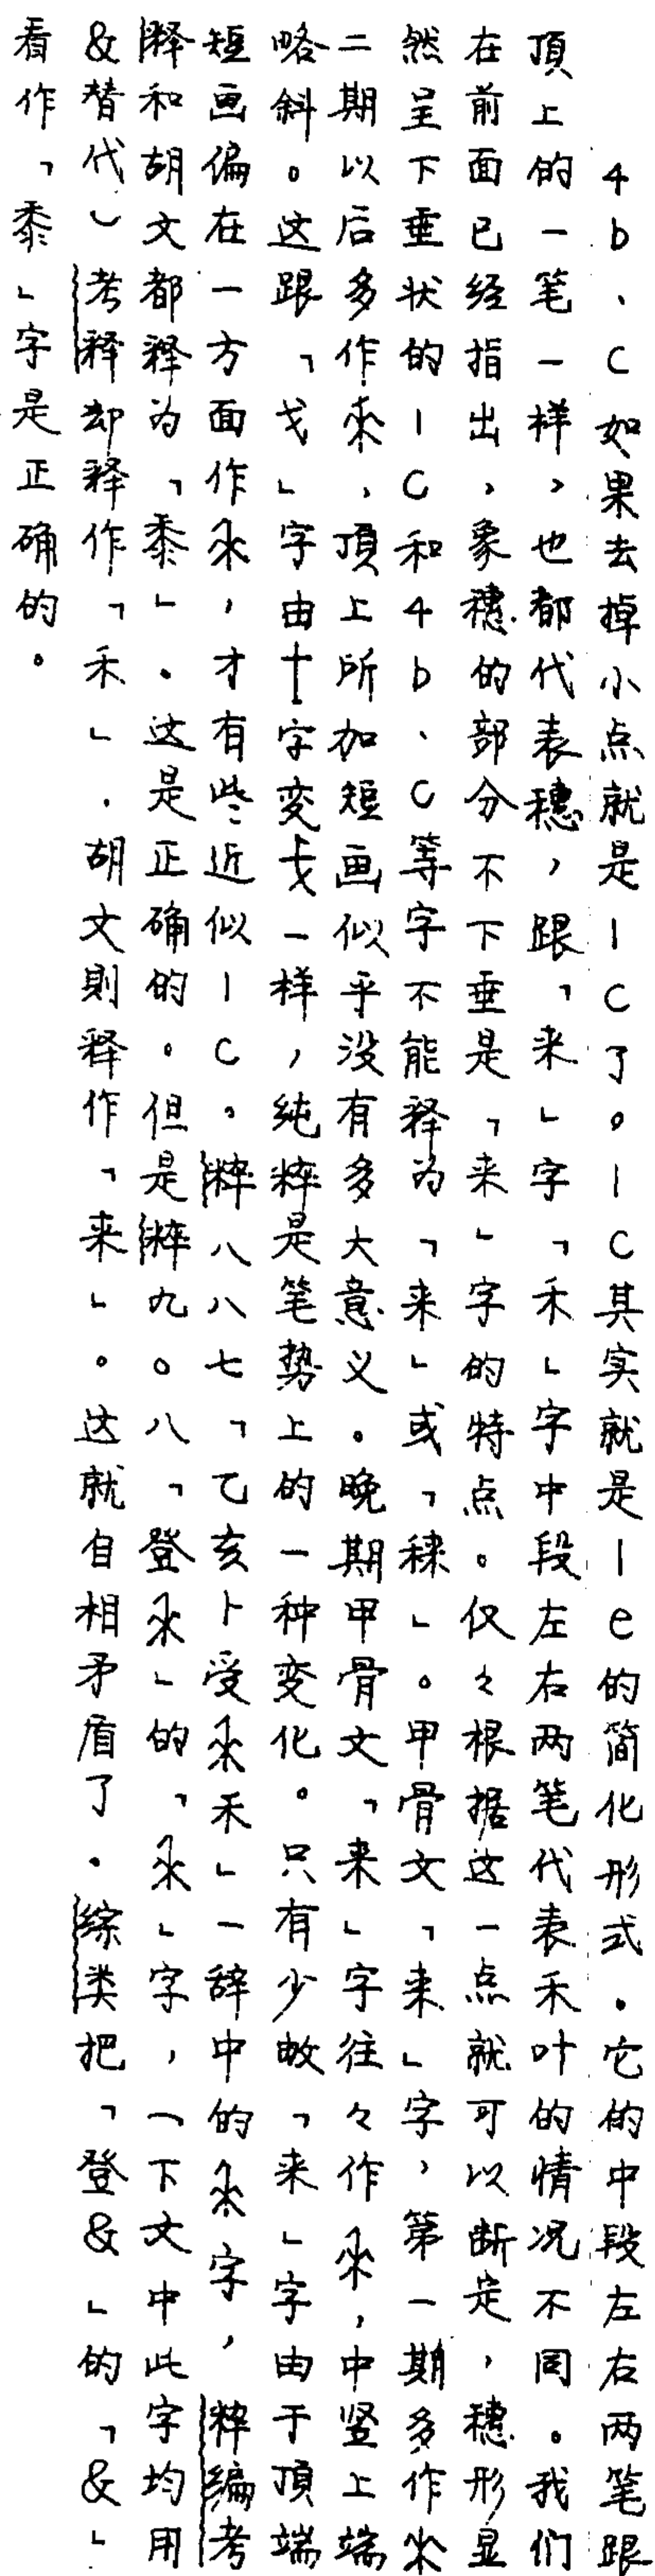 4b、C如果去掉小点就是1C了。1C其实就是1e的简化形式。它的中段左右两笔跟
頂上的一笔一样，也都代表穗，跟「来」字「禾」字中段左右两笔代表禾叶的情况不同。我们
在前面已经指出，象穗的部分不下垂是「来」字的特点。仅々根据这一点就可以断定，穗形显
然呈下垂状的1C和4b、C等字不能释为「来」或「秣」。甲骨文「来」字，第一期多作
二期以后多作，頂上所加短画似乎没有多大意义。晚期甲骨文「来」字往々作，中竖上端
略斜。这跟「戈」字由字变一样，纯粹是笔势上的一种变化。只有少数「来」字由于頂端
短画偏在一方面作，才有些近似1C。粹八八七「乙亥卜受禾」一辞中的字，粹编考
释和胡文都释为「黍」。这是正确的。但是粹九〇八「登」的「」字，（下文中此字均用
&替代）考释却释作「禾」，胡文則释作「来」。这就自相矛盾了。综类把「登&」的「&」
看作「黍」字是正确的。